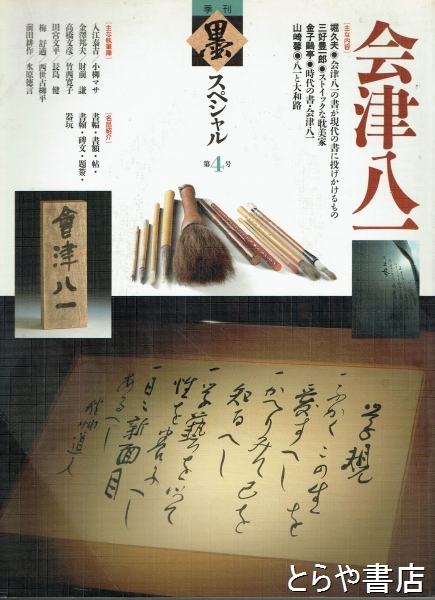 会津八一
[主な内容]
堀久夫●会津八一の書が現代の書に投げかけるもの
三好豊一郎●ストイックな耽美家
金子鷗亭●時代の書・会津八一
山崎馨●八一と大和路
季刊
墨
スペシャル
第4号
[主な執筆陣]
入江泰吉／小柳マサ
金澤邦夫／財前 謙
高橋文彦／竹西寛子
田宮文平／長島 健
梅 舒適／西世古柳平
前田耕作／水原徳言
[名品紹介]
書幅・書額・帖・
書翰・碑文・題簽・
器玩
會津八一
学規
一ふかくこの生を
愛すへし
一かへりみて己を
知るへし
一学藝を以て
性を養ふへし
一日々新面目
あるへし
秋艸道人
とらや書店